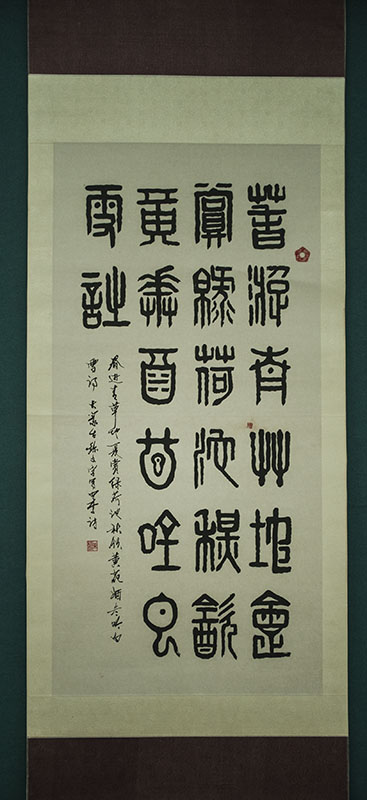 春游青艸地夏
賞綠荷池秋飲
黃華酒冬吟白
雪詩
春遊青草地夏賞綠荷池秋飲黃花酒冬吟白
雪詩 大篆書
四季詩